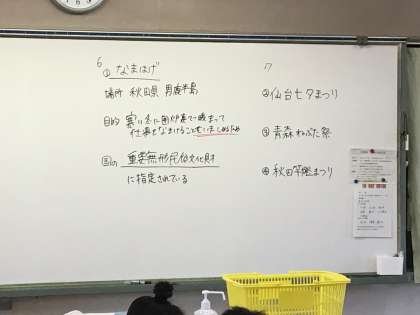 6
① なまはげ
場所 秋田県 男鹿半島
目的 寒い冬に囲炉裏で暖まって
仕事をなまけることをいましめるため
国の 重要無形民俗文化財
に指定されている
7
②仙台七夕まつり
③青森ねぶた祭
④秋田竿燈まつり